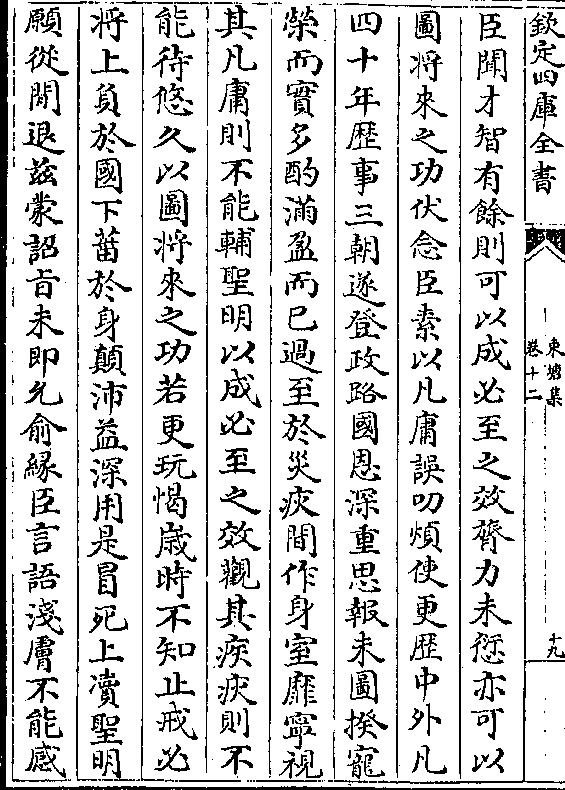 欽定四庫全書
東塘集
卷十二
十九
臣聞才智有餘則可以成必至之效膂力未愆亦可以
圖將來之功伏念臣素以凡庸誤叨煩使更歴中外凡
四十年歴事三朝遂登政路國恩深重思報未圖揆寵
榮而實多酌滿盈而已過至於災疾間作身室靡寧視
其凡庸則不能輔聖明以成必至之效觀其疾疾則不
能待悠久以圖將來之功若更玩愒歲時不知止戒必
將上負於國下菑於身顛沛益深用是冒死上凟聖明
願從閒退兹蒙詔旨未即允俞縁臣言語淺膚不能感